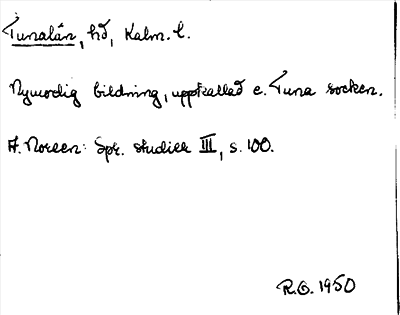 Tunalän, hd, Kalm. l.
Nymodig bildning, uppkallad e. Tuna socken.
A. Noreen: Spr. studier III, s. 100.
R.O. 1950